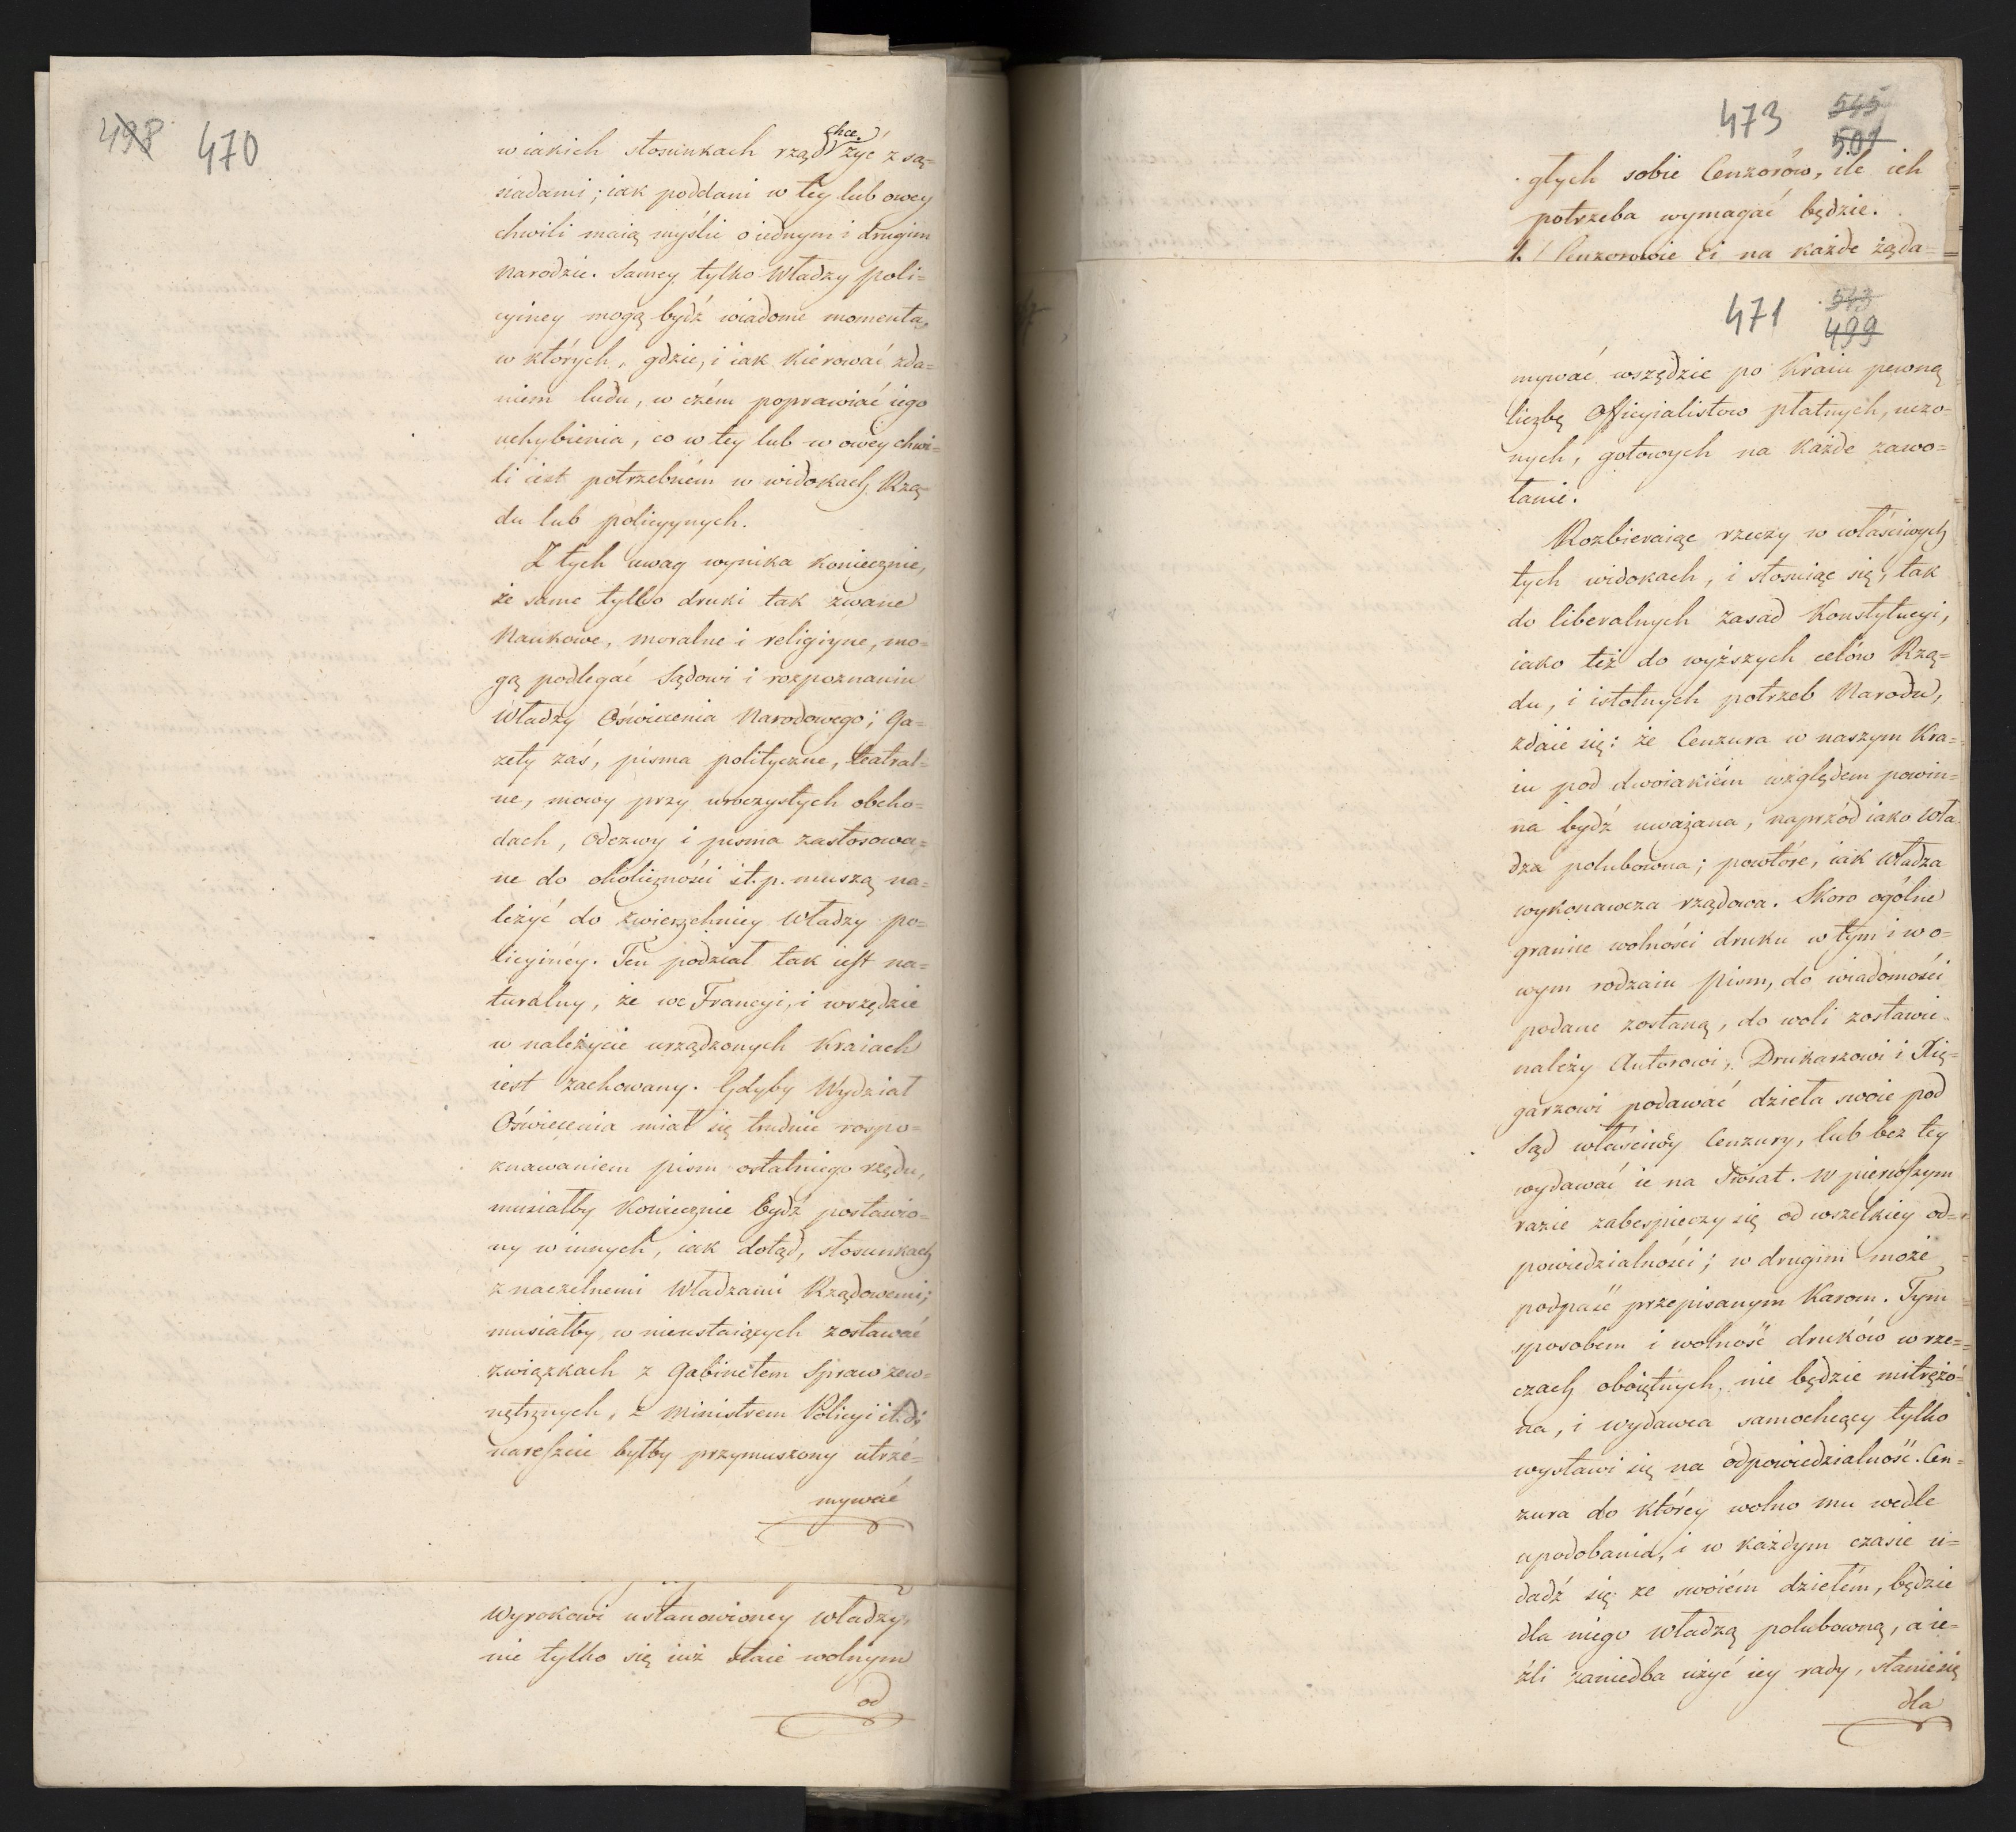 498 470
w iakich stosunkach rząd chce żyć z są=
siadami; iak poddani w tey lub owey
chwili maią myślić o iednym i drugim
Narodzie. Samey tylko Władzy poli=
cyiney mogą bydź wiadome momenta,
w których, gdzie, i iak kierować zda=
niem ludu, w czém poprawiać iego
uchybienia, co w tey lub w owey chwi=
li iest potrzebném w widokach Rzą=
du lub policyynych.
Z tych uwag wynika koniecznie,
że same tylko druki tak zwane
Naukowe, moralne i religiyne, mo=
gą podlegać Sądowi i rozpoznaniu
Władzy Oświecenia Narodowego; Ga=
zety zaś, pisma polityczne, teatral=
ne, mowy przy uroczystych obcho=
dach, Odezwy i pisma zastosowa=
ne do okoliczności it.p. muszą na=
leżyć do zwierzchniey Władzy po=
licyinéy. Ten podział tak iest na=
turalny, że we Francyi, i wszędzie
w należycie urządzonych Kraiach
iest zachowany. Gdyby Wydział
Oświecenia miał się trudnić rospo=
znawaniem pism ostatniego rzędu,
musiałby koniecznie bydź postawio=
ny w innych, iak dotąd, stosunkach
z naczelnemi Władzami Rządowemi;
musiałby w nieustaiących zostawać
związkach z Gabinetem Spraw zew=
nętrznych, z Ministrem Policyi it.d;
nareszcie byłby przymuszony utrzé=
mywać
Wyrokowi ustanowioney władzy,
nie tylko się iuż staie wolnym
od
473 545
501
głych sobie Cenzorów, ile ich
potrzeba wymagać będzie.
Cenzorowie ci na każde żąda=
471 543
499
mywać wszędzie po Kraiu pewną
liczbę Officyialistow płatnych, uczo=
nych, gotowych na każde zawo=
łanie.
Rozbieraiąc rzeczy w właściwych
tych widokach, i stosuiąc się, tak
do liberalnych zasad Konstytucyi,
iako też do wyższych celów Rzą=
du, i istotnych potrzeb Narodu,
zdaie się: że Cenzura w naszym Kra=
iu pod dwoiakiém względem powin=
na bydź uważana; naprzód iako wła=
dza polubowna; powtóre, iak władza
wykonawcza rządowa. Skoro ogólne
granice wolności druku w tym i wo=
wym rodzaiu pism, do wiadomości
podane zostaną, do woli zostawić
należy Autorowi, Drukarzowi i Xię=
garzowi podawać dzieła swoie pod
Sąd właściwéy Cenzury, lub bez tey
wydawać ie na Świat. W pierwszym
razie zabespieczy się od wszelkiey od=
powiedzialności; w drugim może
podpaść przepisanym Karom. Tym
sposobem i wolność druków w rze=
czach oboiętnych, nie będzie mitrężo=
na, i wydawca samochcący tylko
wystawi się na odpowiedzialność. Cen=
zura do którey wolno mu wedle
upodobania, i w każdym czasie u=
dadź się ze swoiém dziełém, będzie
dla niego władzą polubowną, a ie=
źli zaniedba użyć iey rady, stanie się
dla